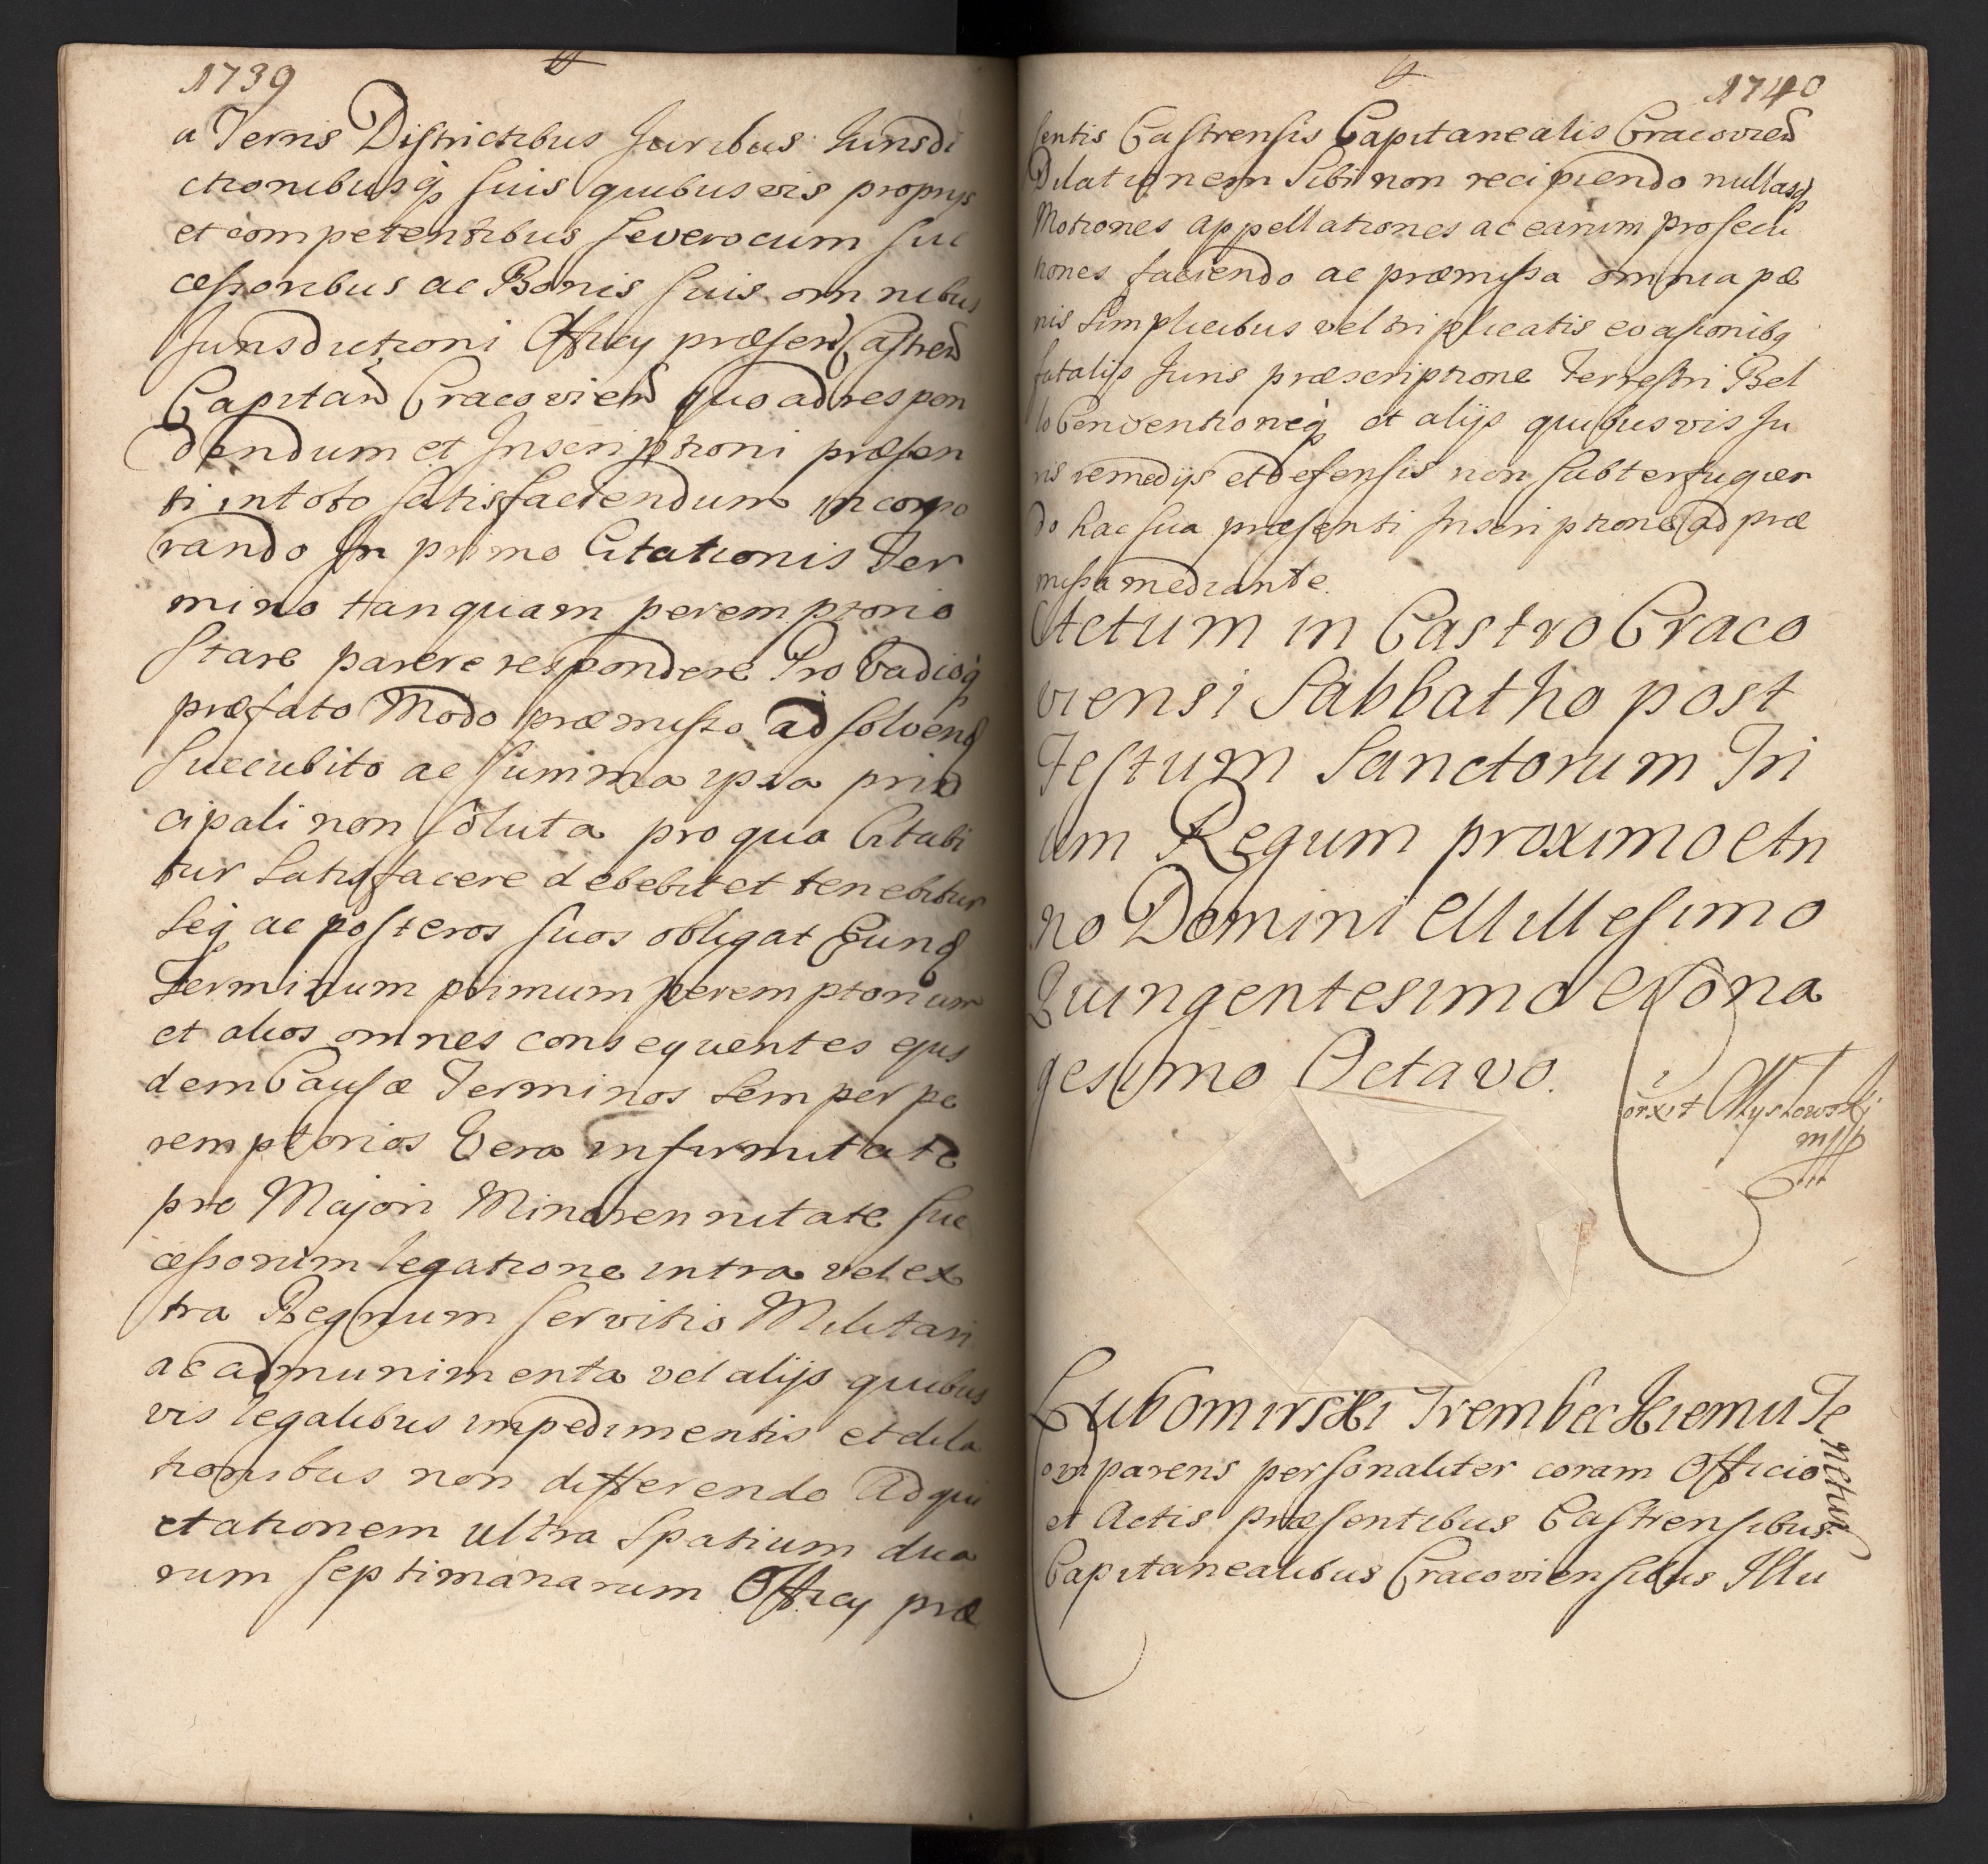 1739
a Terris Districtibus Juribus Jurisdi
ctionibusq̨ suis quibusvis proprijs
et competentibus severo cum suc
cessoribus ac Bonis suis omnibus
Jurisdictioni Officij præsen Castren
Capitan Cracovien quo ad respon
dendum et Inscriptioni præsen
ti in toto satisfaciendum incorpo
rando In primo Citationis Ter
mino tanquam peremptorio
stare parere respondere Pro Vadioq̨
præfato Modo præmisso ad solvend
succubito ac summa ipsa prin
cipali non soluta pro qua Citabi
tur satisfacere debebit et tenebitur
seq̨ ac posteros suos obligat Eund
Terminum primum peremptorium
et alios omnes consequentes ejus
dem Causæ Terminos semper pe
remptorios Vera infirmitate
pro Majori Minorennitate suc
cessorum legatione intra vel ex
tra Regnum servitio Militari
ac ad munimenta vel alijs quibus
vis legalibus impedimentis et dila
tionibus non differendo Ad qui
etationem ultra spatium dua
rum septimanarum Officij præ
1740
sentis Castrensis Capitanealis Cracovien
Dilationem sibi non recipiendo nullasq̨
Motiones appellationes ac earum prosecu
tiones faciendo ac præmissa omnia pæ
nis simplicibus vel triplicatis evasionibq
fatalijs Juris præscriptione Terrestri Bel
lo Conventioneq̨ et alijs quibusvis Ju
ris remedijs et defensis non subterfugien
do hac sua præsenti Inscriptione ad præ
missa mediante.
Actum in Castro Craco
viensi Sabbatho post
Festum Sanctorum Tri
um Regum proximo An
no Domini Millesimo
Quingentesimo Nona
gesimo Octavo.
Corxit Mysłowskj
mpp
Lubomirski Trembecki emit Te
nctur
Comparens personaliter coram Officio
et Actis præsentibus Castrensibus
Capitanealibus Cracoviensibus Illu